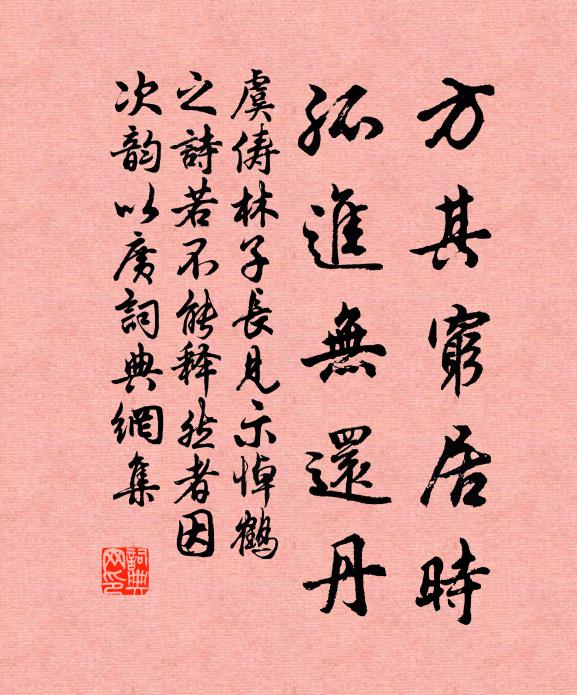 方其窮居時
孤進無還丹
虞儔林子長見示悼鶴
之詩若不能释然者因
次韵以廣詞典網集
詞典网印